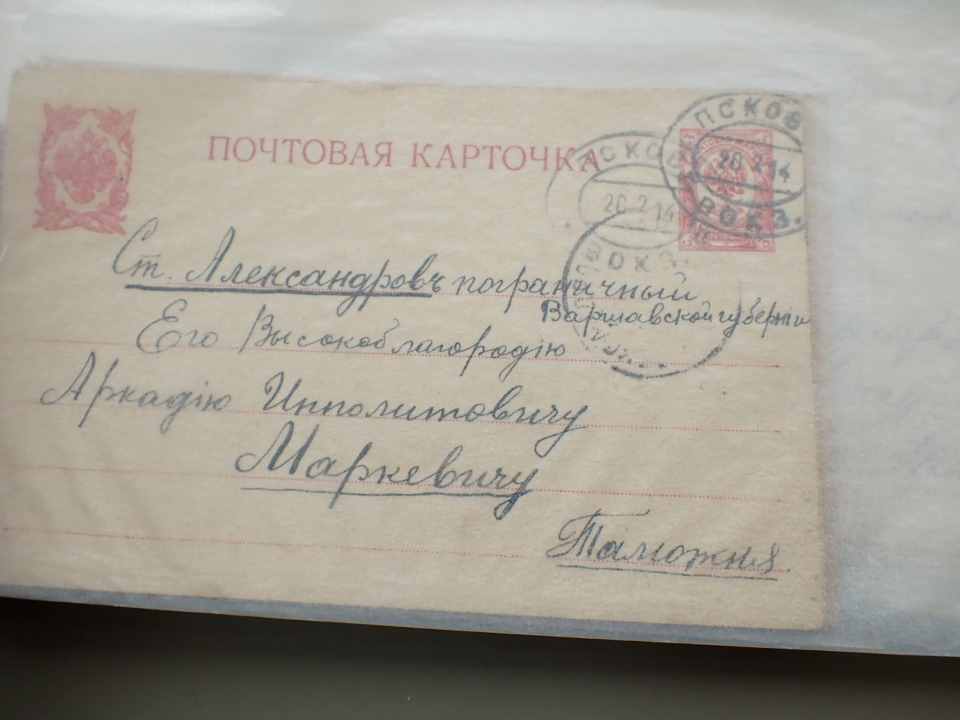 ПОЧТОВАЯ КАРТОЧКА
ПСКОВ
20.2.14
ВОКЗ.
ПСКОВ
20.2.14
ВОКЗ.
Ст. Александровъ пограничный
Варшавской губерніи
Его Высокоблагородію
Аркадію Ипполитовичу
Маркевичу
Таможня.